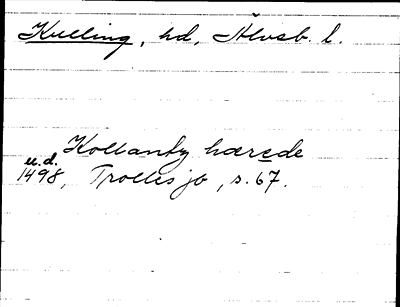 Kulling, hd, Älvsb. l.
Kollanty hærede
u.d.
1498, Trolles jb, s. 67.